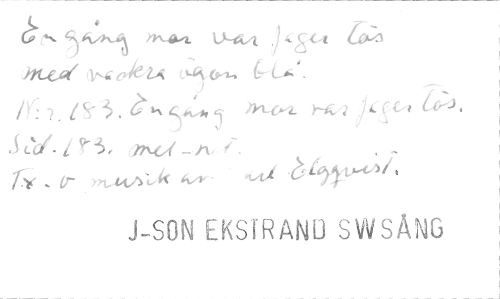 En gång mor var fager tös
med vackra ögon blå.
N:r. 183. En gång mor var fager tös.
Sid. 183. mel-not.
Tx. o musik av Elgqvist.
J-SON EKSTRAND SWSÅNG